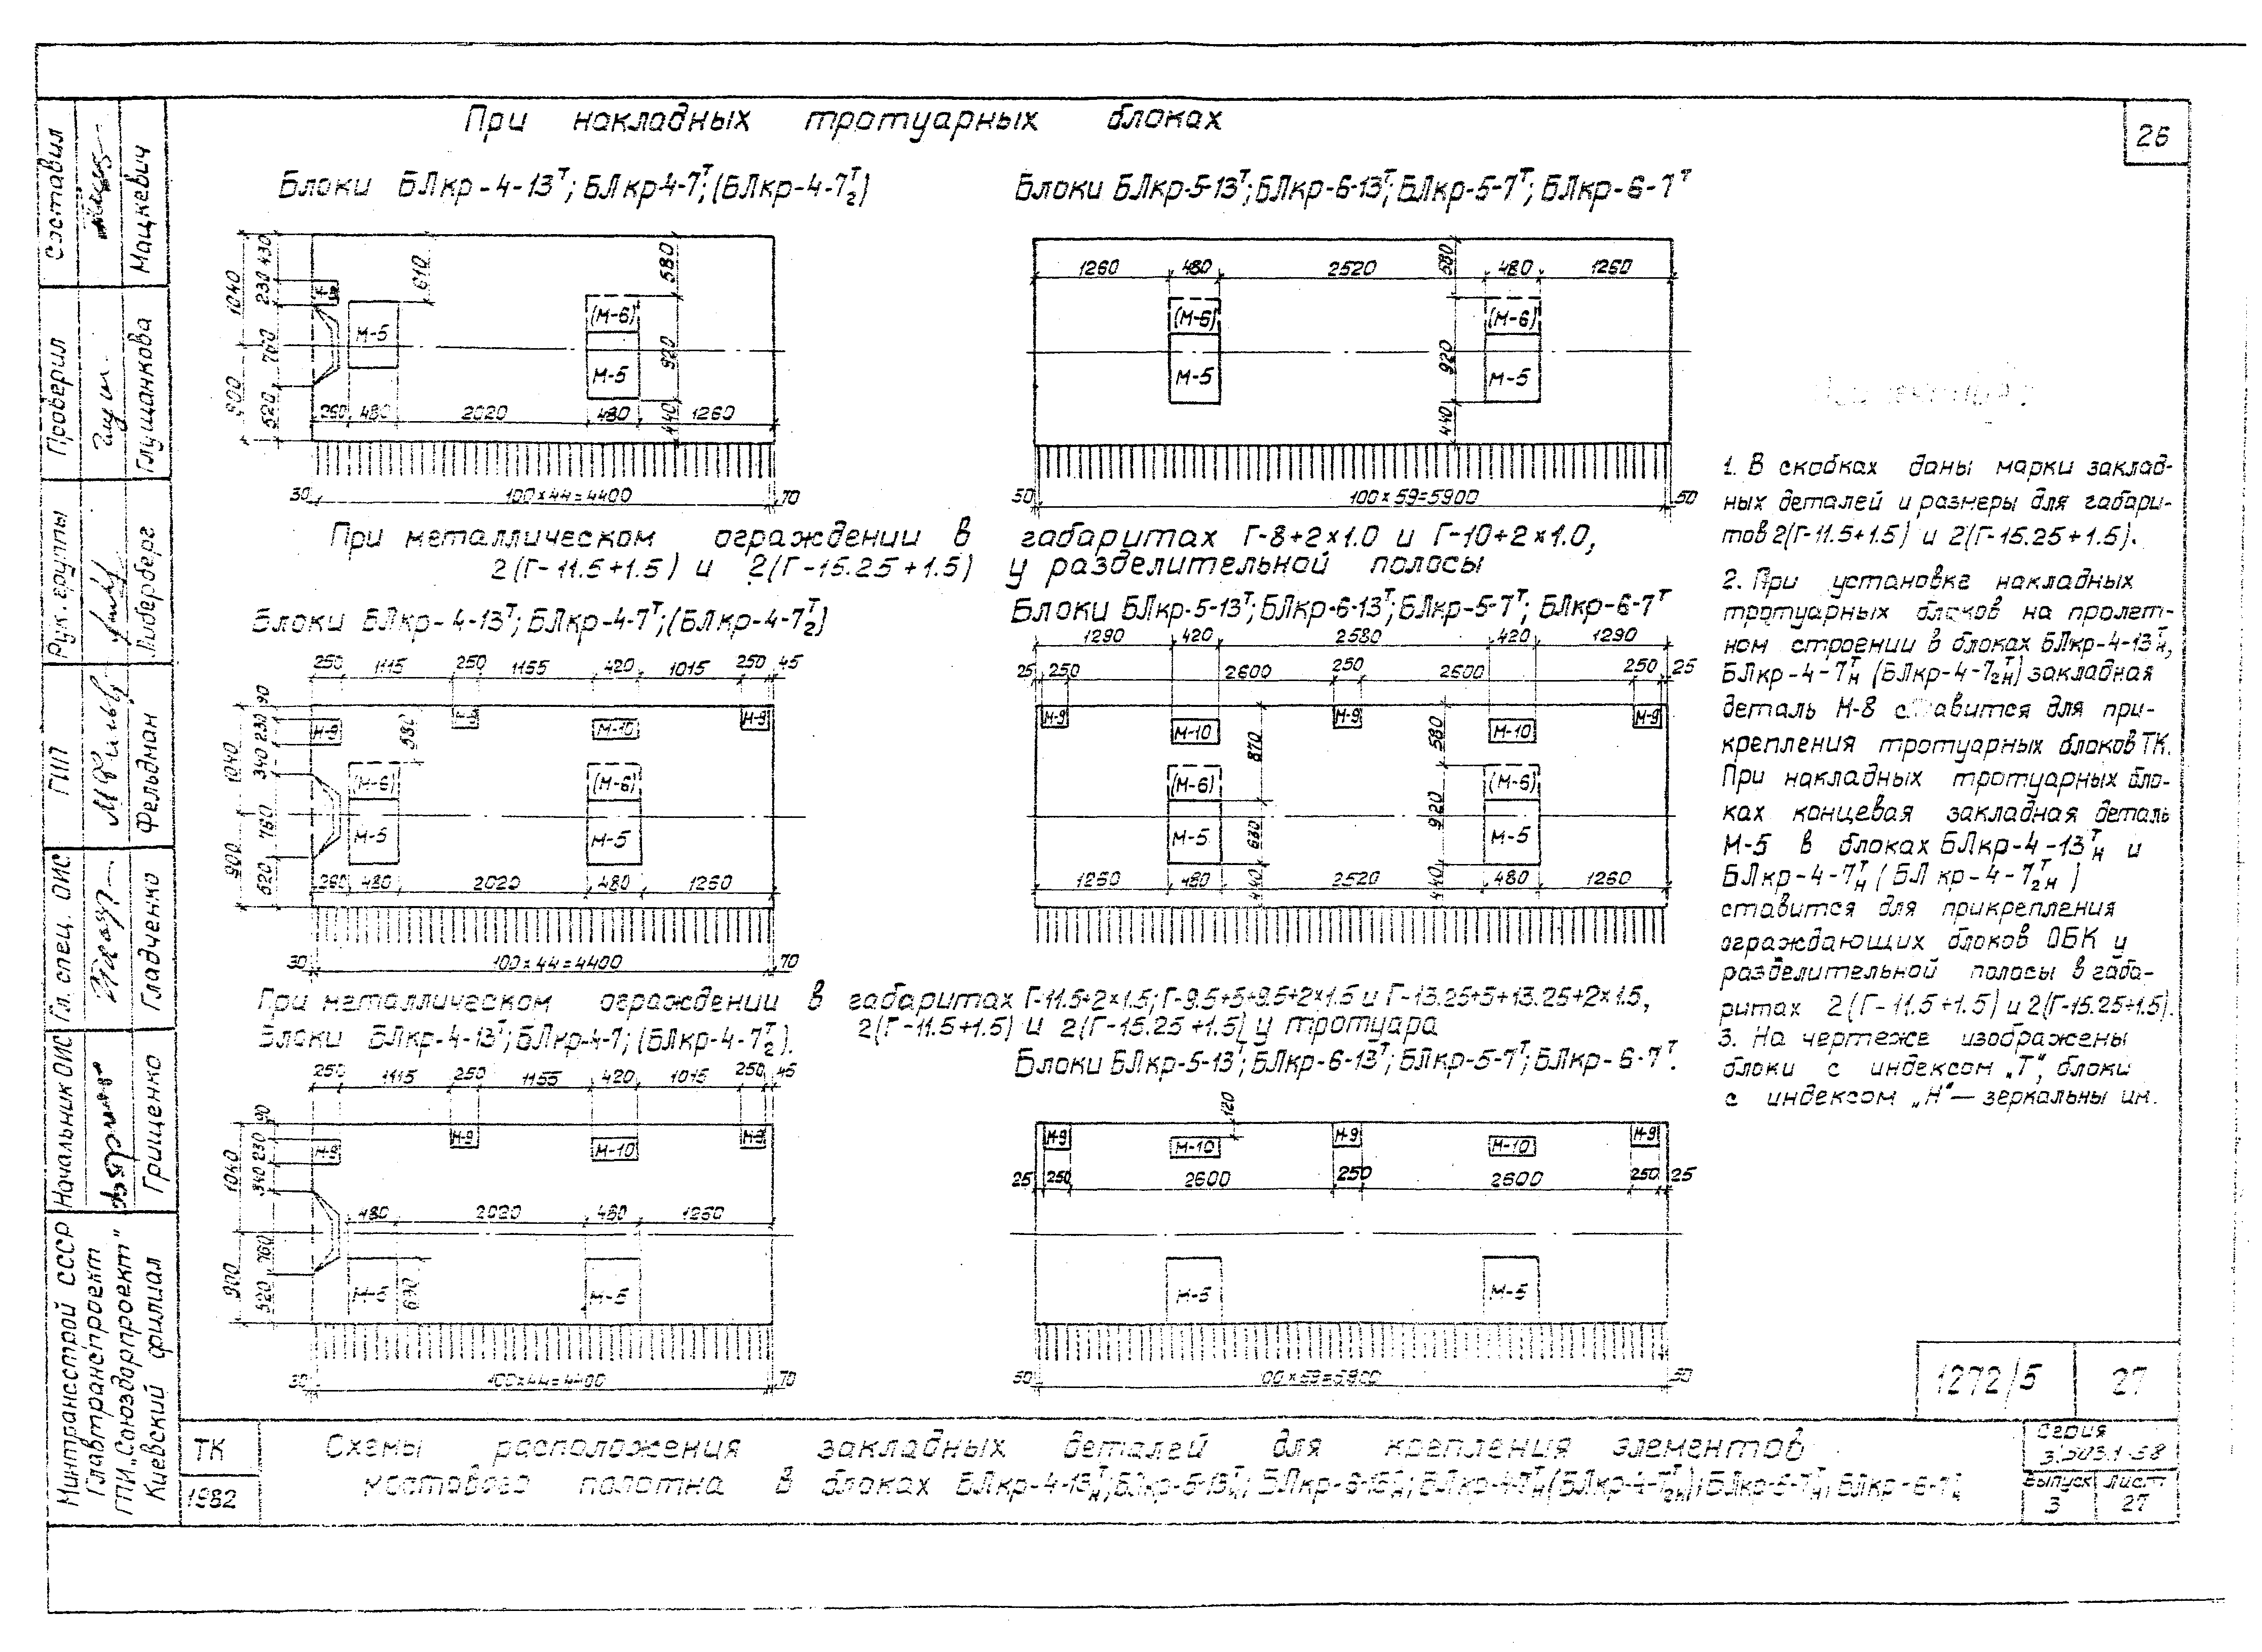 26
При накладных тротуарных блоках
Блоки БЛкр-4-13ᵀ; БЛкр4-7ᵀ; (БЛкр-4-7₂ᵀ)
Блоки БЛкр-5-13ᵀ; БЛкр-6-13ᵀ; БЛкр-5-7ᵀ; БЛкр-6-7ᵀ
430 230 1040 760 900 520
610 580 920 440
М-5 (М-6) М-5
260 480 2020 480 1260
30 100×44=4400 70
1260 480 2520 480 1260
580 920 440
(М-6) М-5 (М-6) М-5
50 100×59=5900 50
При металлическом ограждении в габаритах Г-8+2×1.0 и Г-10+2×1.0,
2(Г-11.5+1.5) и 2(Г-15.25+1.5) у разделительной полосы
Блоки БЛкр-4-13ᵀ; БЛкр-4-7ᵀ; (БЛкр-4-7₂ᵀ)
Блоки БЛкр-5-13ᵀ; БЛкр-6-13ᵀ; БЛкр-5-7ᵀ; БЛкр-6-7ᵀ
250 1115 250 1155 420 1015 250 45
90 230 340 1040 760 900 520
М-9 М-9 М-10 М-9
580
(М-6) М-5 (М-6) М-5
260 480 2020 480 1260
30 100×44=4400 70
1290 420 2580 420 1290
25 250 2600 250 2600 250 25
М-9 М-10 М-9 М-10 М-9
870 630 440 580 920 440
(М-6) М-5 (М-6) М-5
1260 480 2520 480 1260
При металлическом ограждении в габаритах Г-11.5+2×1.5; Г-9.5+5+9.5+2×1.5 и Г-13.25+5+13.25+2×1.5,
2(Г-11.5+1.5) и 2(Г-15.25+1.5) у тротуара
Блоки БЛкр-4-13ᵀ; БЛкр-4-7; (БЛкр-4-7₂ᵀ).
Блоки БЛкр-5-13ᵀ; БЛкр-6-13ᵀ; БЛкр-5-7ᵀ; БЛкр-6-7ᵀ.
250 1115 250 1155 420 1015 250 45
90 230 340 1040 760 900 520
М-9 М-9 М-10 М-9
480 2020 480 1260
М-5 630 М-5
30 100×44=4400 70
120
М-9 М-10 М-9 М-10 М-9
25 250 2600 250 2600 250 25
М-5 М-5
50 00×59=5900 50
1. В скобках даны марки заклад-
ных деталей и размеры для габари-
тов 2(Г-11.5+1.5) и 2(Г-15.25+1.5).
2. При установке накладных
тротуарных блоков на пролет-
ном строении в блоках БЛкр-4-13ᵀн,
БЛкр-4-7ᵀн (БЛкр-4-7ᵀ₂н) закладная
деталь М-8 ставится для при-
крепления тротуарных блоков ТК.
При накладных тротуарных бло-
ках концевая закладная деталь
М-5 в блоках БЛкр-4-13ᵀн и
БЛкр-4-7ᵀн (БЛкр-4-7ᵀ₂н)
ставится для прикрепления
ограждающих блоков ОБК у
разделительной полосы в габа-
ритах 2(Г-11.5+1.5) и 2(Г-15.25+1.5).
3. На чертеже изображены
блоки с индексом „Т“, блоки
с индексом „Н“ — зеркальны им.
Составил Мацкевич
Проверил Глушанкова
Рук. группы Либерберг
ГИП Фельдман
Гл. спец. ОИС Гладченко
Начальник ОИС Грищенко
Минтрансстрой СССР
Главтранспроект
ГПИ „Союздорпроект“
Киевский филиал
1272/5 27
ТК
1982
Схемы расположения закладных деталей для крепления элементов
мостового полотна в блоках БЛкр-4-13ᵀн; БЛкр-5-13ᵀн; БЛкр-6-13ᵀн; БЛкр-4-7ᵀн (БЛкр-4-7ᵀ₂н); БЛкр-5-7ᵀн; БЛкр-6-7ᵀн
Серия
3.503.1-58
Выпуск Лист
3 27